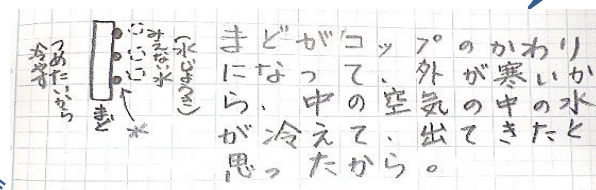 まどがコップのかわり
になって、外が寒いか
ら、中の空気の中の水
が冷えて、出てきたと
思ったから。
(水じょうき)
みえない水
水
まど
つめたいから
冷やす